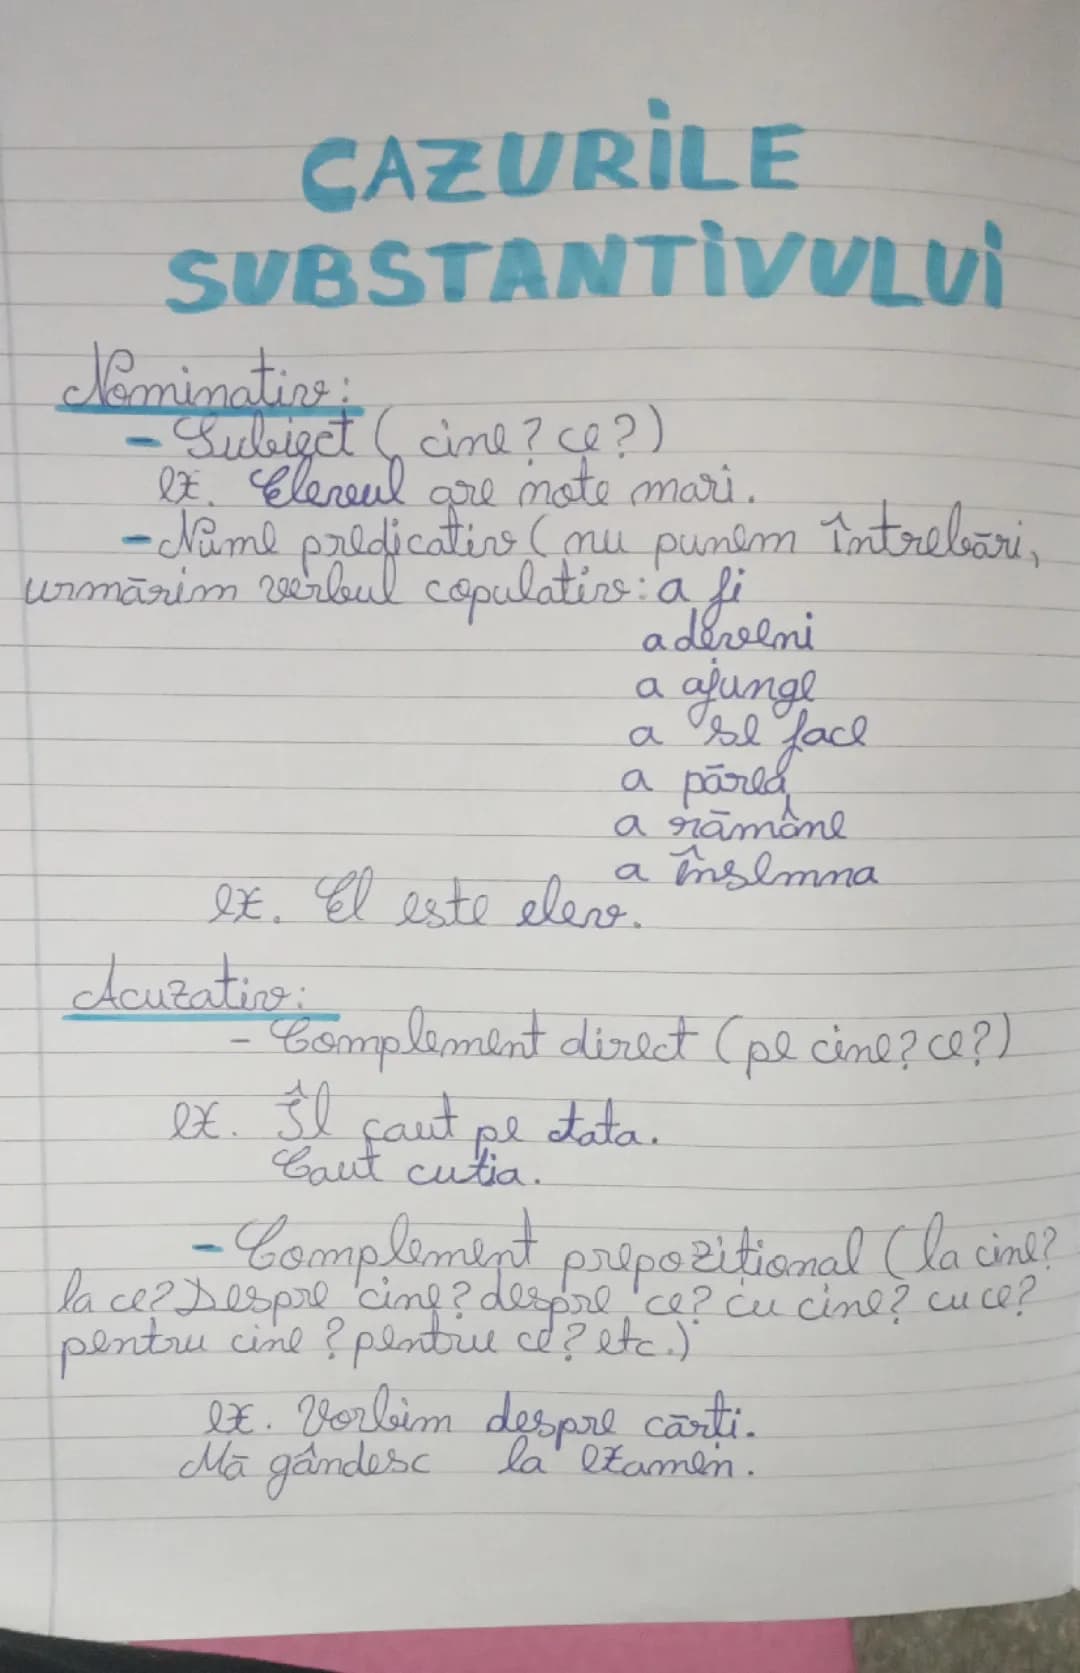 CAZURİLE
SUBSTANTİVULUİ
Nominativ:
- Subiect ( cine? ce?)
ex. Elevul are note mari.
- Nume predicativ ( nu punem întrebări,
urmărim verbul copulativ: a fi
a deveni
a ajunge
a se face
a părea
a rămâne
a însemna
ex. El este elev.
Acuzativ:
- Complement direct ( pe cine? ce?)
ex. Îl caut pe tata.
Caut cutia.
- Complement prepozițional ( la cine?
la ce? Despre cine? despre ce? cu cine? cu ce?
pentru cine? pentru ce? etc.)
ex. Vorbim despre cărți.
Mă gândesc la examen.